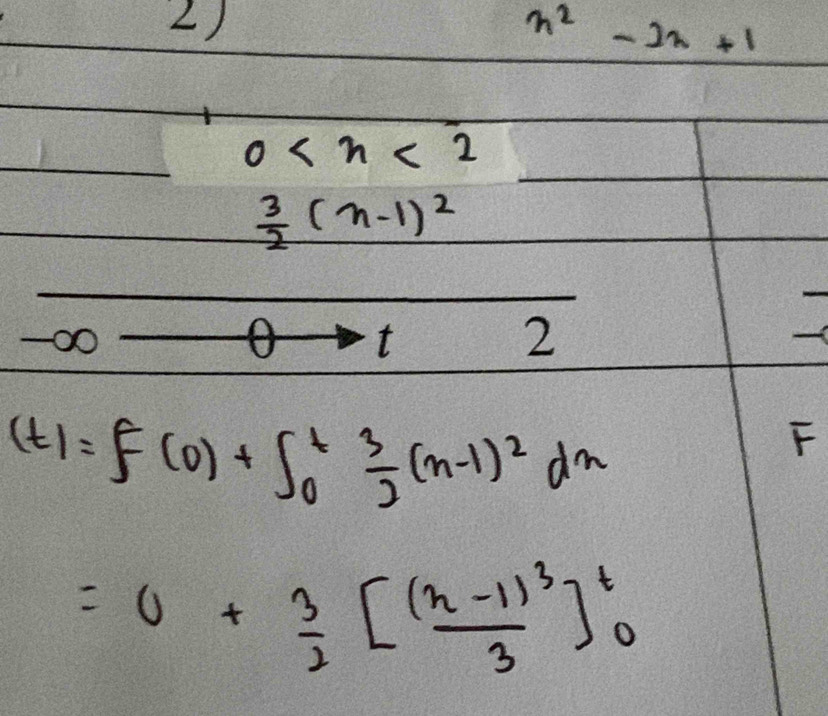 2) n² - 2n + 1
0 < n < 2
3/2 (n-1)²
-∞ 0 t 2
(t) = F(0) + ∫₀ᵗ 3/2 (n-1)² dn
F
= 0 + 3/2 [(n-1)³/3]₀ᵗ